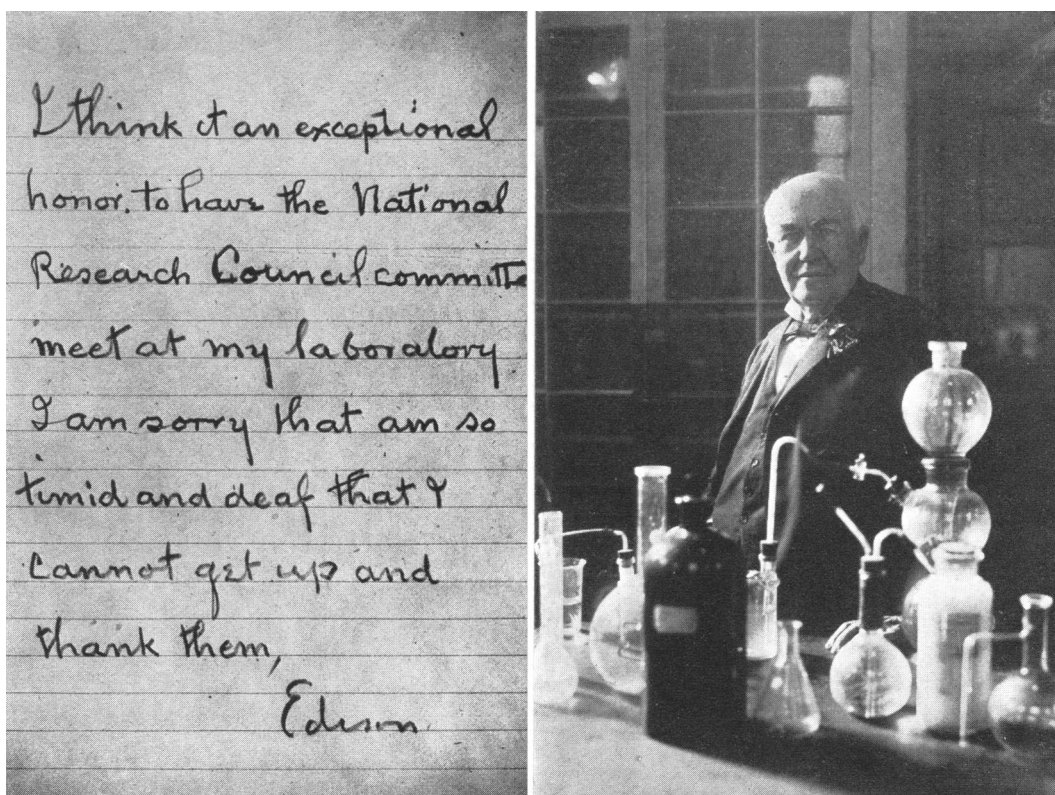 I think it an exceptional
honor, to have the National
Research Council committe
meet at my laboratory
I am sorry that am so
timid and deaf that I
cannot get up and
thank them,
Edison